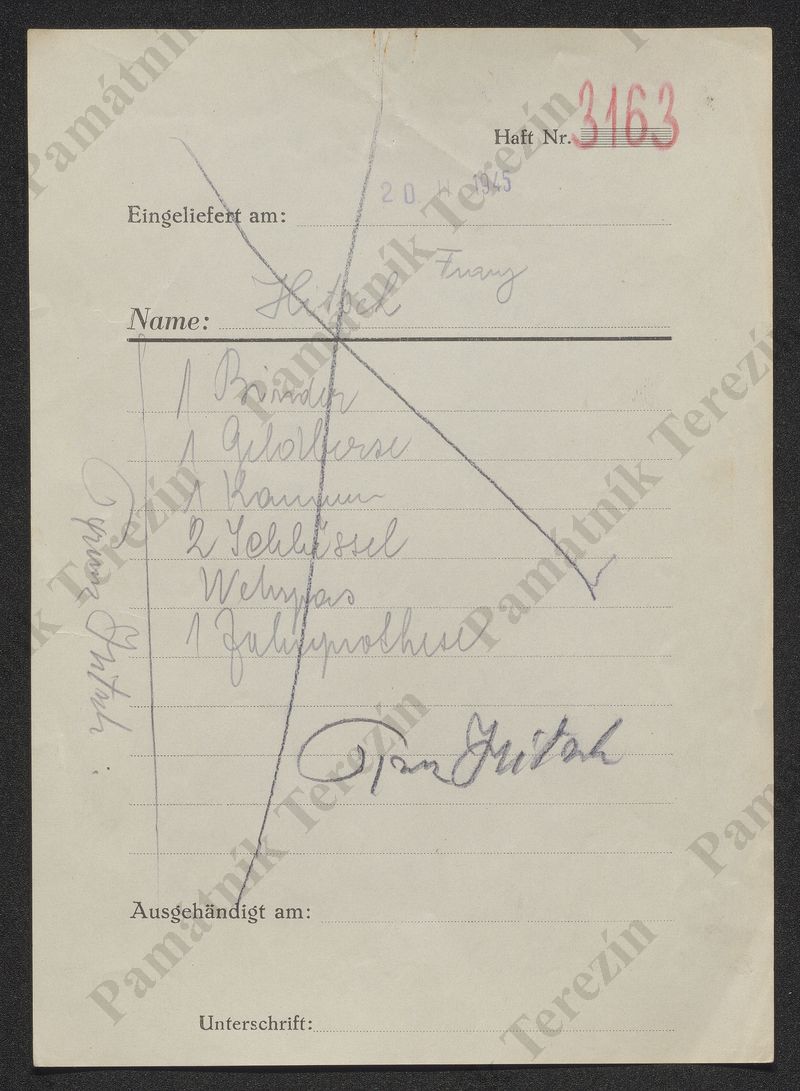 Haft Nr. 3163
20. II. 1945
Eingeliefert am:
Franz
Name: Hitsch
1 Binder
1 Geldberse
1 Kamm
2 Schlüssel
Wehrpas
1 Zahnprothese
Franz Hitsch
Franz Hitsch
Ausgehändigt am:
Unterschrift:
Památník Terezín